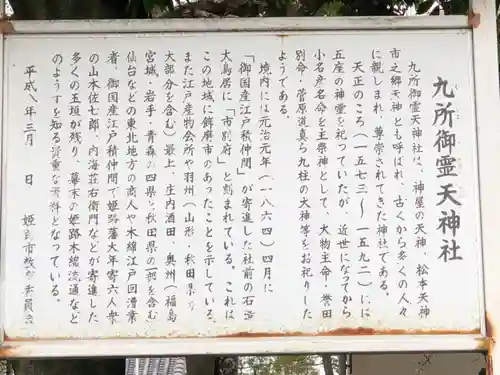 九所御霊天神社
九所御霊天神社は、神屋の天神、松本天神
市之郷天神とも呼ばれ、古くから多くの人々
に親しまれ、尊崇されてきた神社である。
天正のころ(一五七三〜一五九二)には
五座の神霊を祀っていたが、近世になってから
小名彦名命を主祭神として、大物主命・誉田
別命・菅原道真ら九柱の大神等をお祀りした
ようである。
境内には元治元年(一八六四)四月に
「御国産江戸積仲間」が寄進した社前の石造
大鳥居に「市別府」と刻まれている。これは
この地域に飾磨市のあったことを示している。
また江戸産物会所や羽州(山形・秋田県の
大部分を含む)最上、庄内酒田・奥州(福島
宮城・岩手・青森の四県と秋田県の一部を含む)
仙台などの東北地方の商人や木綿江戸回漕業
者、御国産江戸積仲間で姫路藩大年寄六人衆
の山本佐七郎、内海荘右衛門などが寄進した
多くの玉垣が残り、幕末の姫路木綿流通など
のようすを知る貴重な資料となっている。
平成八年三月 日 姫路市教育委員会